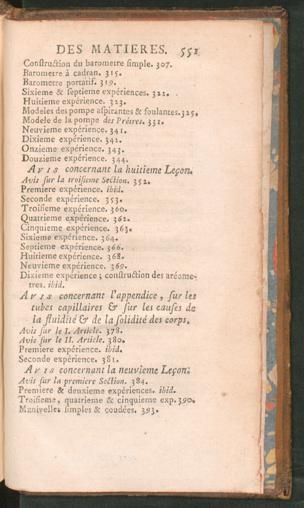 DES MATIERES. 551
Construction du barometre simple. 307.
Barometre à cadran. 315.
Barometre portatif. 319.
Sixieme & septieme expériences. 322.
Huitieme expérience. 323.
Modeles des pompe aspirantes & foulantes. 325.
Modele de la pompe des Prêtres. 331.
Neuvieme expérience. 341.
Dixieme expérience. 342.
Onzieme expérience. 343.
Douzieme expérience. 344.
Avis concernant la huitieme Leçon.
Avis sur la troisieme Section. 352.
Premiere expérience. ibid.
Seconde expérience. 353.
Troisieme expérience. 360.
Quatrieme expérience. 362.
Cinquieme expérience. 363.
Sixieme expérience. 364.
Septieme expérience. 366.
Huitieme expérience. 368.
Neuvieme expérience. 369.
Dixieme expérience ; construction des aréome-
tres. ibid.
Avis concernant l'appendice, sur les
tubes capillaires & sur les causes de
la fluidité & de la solidité des corps.
Avis sur le I. Article. 378.
Avis sur le II. Article. 380.
Premiere expérience. ibid.
Seconde expérience. 381.
Avis concernant la neuvieme Leçon.
Avis sur la premiere Section. 384.
Premiere & deuxieme expériences. ibid.
Troisieme, quatrieme & cinquieme exp. 390.
Manivelles simples & coudées. 393.